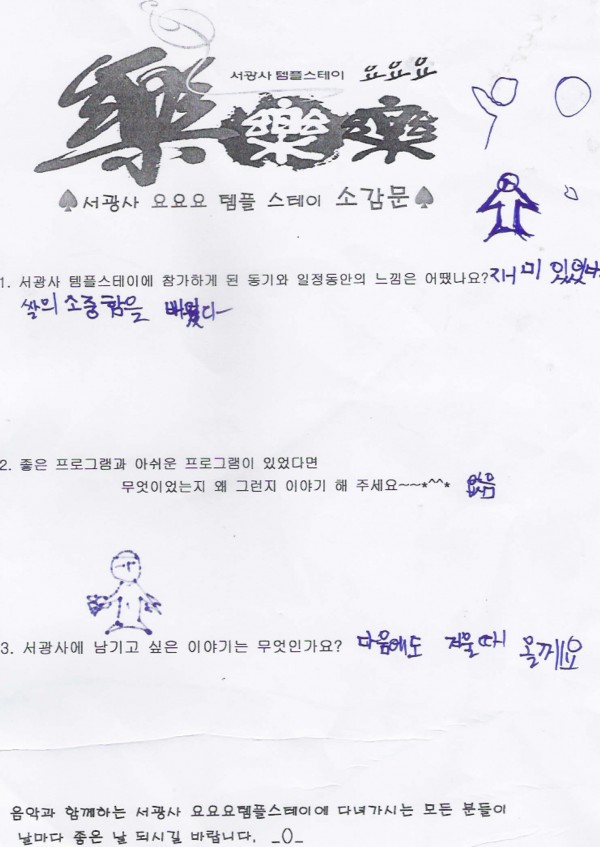 서광사 템플스테이 요요요
樂樂樂
♠서광사 요요요 템플 스테이 소감문♠
1. 서광사 템플스테이에 참가하게 된 동기와 일정동안의 느낌은 어땠나요? 재미 있었다
쌀의 소중함을 배웠다
2. 좋은 프로그램과 아쉬운 프로그램이 있었다면
무엇이었는지 왜 그런지 이야기 해 주세요~~*^^* 없음
3. 서광사에 남기고 싶은 이야기는 무엇인가요? 다음에도 올께요
음악과 함께하는 서광사 요요요템플스테이에 다녀가시는 모든 분들이
날마다 좋은 날 되시길 바랍니다. _()_